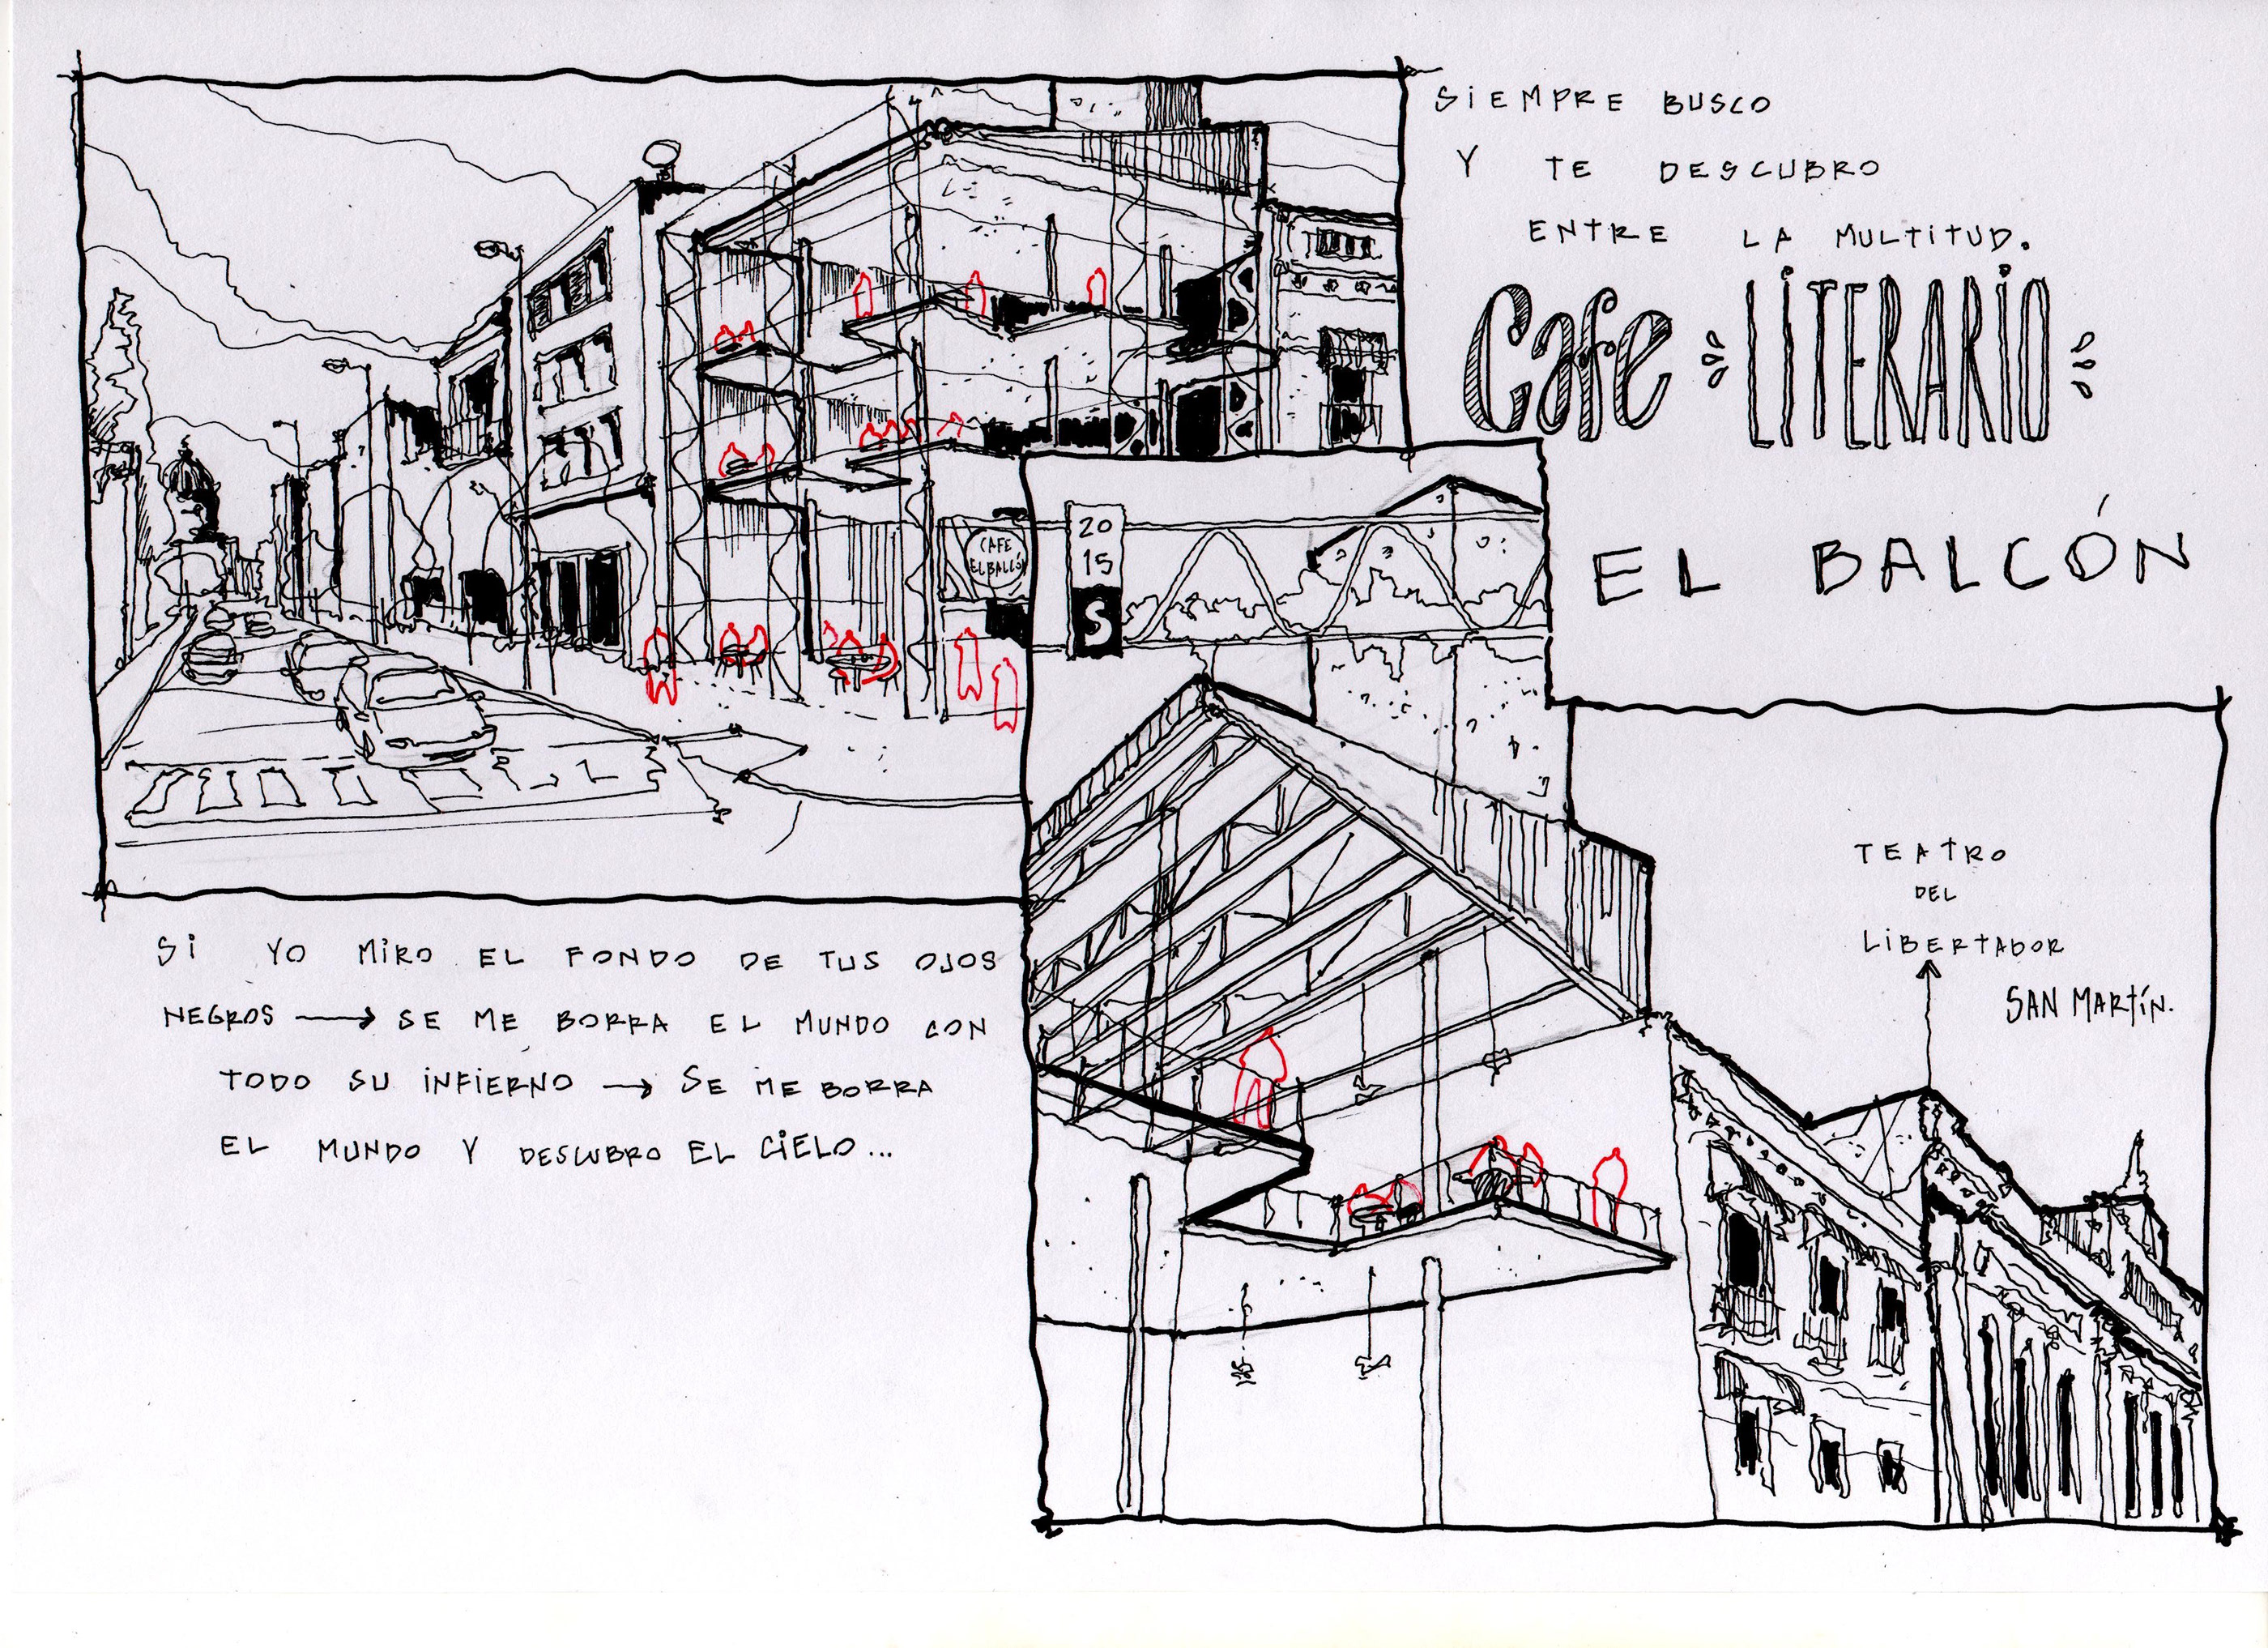 SIEMPRE BUSCO
Y TE DESCUBRO
ENTRE LA MULTITUD.
Cafe LITERARIO
EL BALCÓN
CAFE
EL BALCÓN
20
15
S
TEATRO
DEL
LIBERTADOR
SAN MARTÍN.
SI YO MIRO EL FONDO DE TUS OJOS
NEGROS → SE ME BORRA EL MUNDO CON
TODO SU INFIERNO → SE ME BORRA
EL MUNDO Y DESCUBRO EL CIELO...